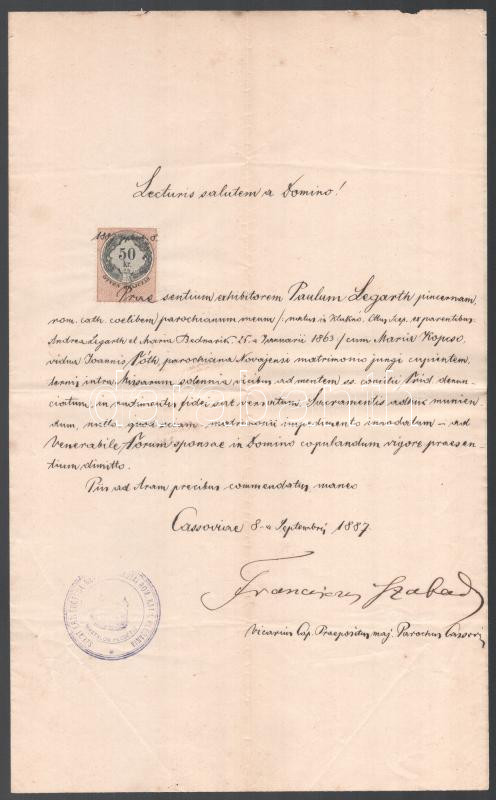 Lecturis salutem a Domino!
50
kr.
Prae sentium exhibitorem Paulum Legarth pincernam
rom. cath. coelibem /parochianum meum/: natus in Kluknó, Cttus Scep. ex parentibus
Andrea Legarth et Maria Bednarik 25-a Januarii 1863/ cum Maria Kopcso
vidua Joannis Póth, parochiana Lovajensi matrimonio jungi cupientem
ternis intra Missarum solennia vicibus ad mentem ss. concilii Trid. denun-
ciatum, in rudimentis fidei sat versatum, Sacramentis adhuc munien-
dum, nullo quod sciam matrimonii impedimento innodatum – ad
Venerabile Forum sponsae in Domino copulandum vigore praesen-
tium dimitto.
Piis ad Aram precibus commendatus maneo
Cassoviae 8-a Septembris 1887.
Franciscus Szabad
Vicarius Cap. Praepositus maj. Parochus Cassov